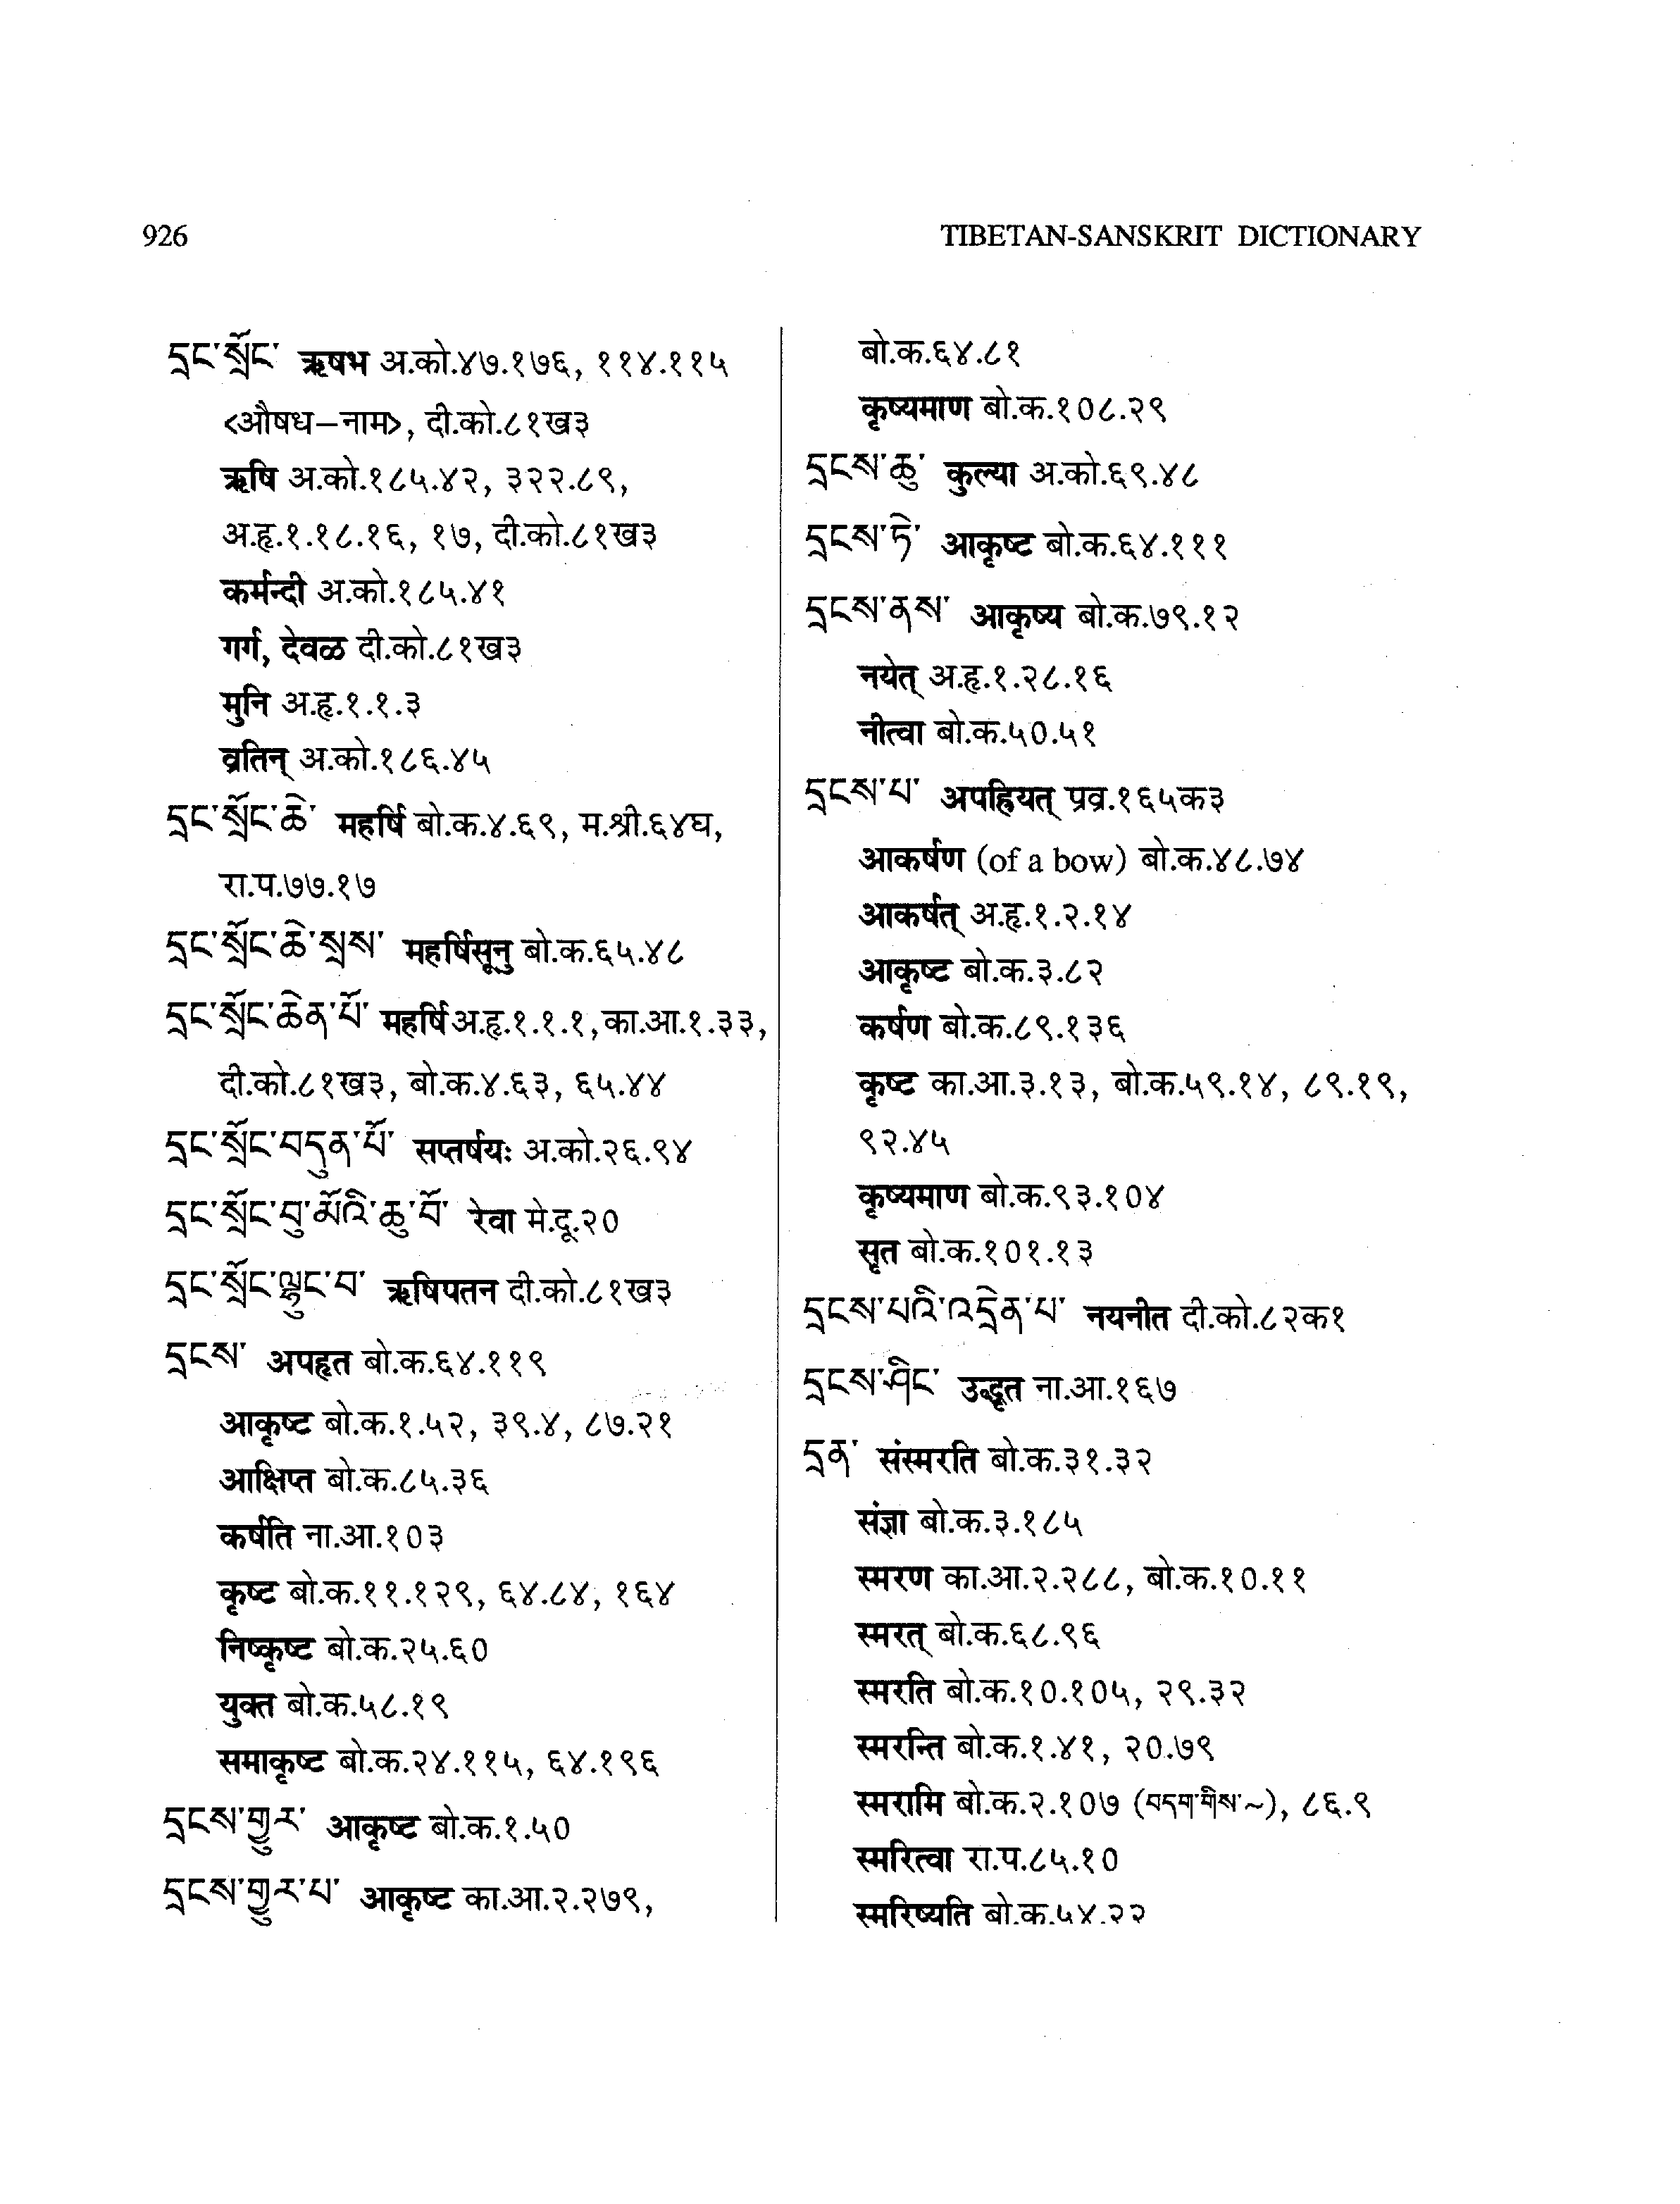 926
TIBETAN-SANSKRIT DICTIONARY
དྲང་སྲོང་ ऋषभ अ.को.४७.१७६, ११४.११५
<औषध–नाम>, दी.को.८१ख३
ऋषि अ.को.१८५.४२, ३२२.८९,
अ.हृ.१.१८.१६, १७, दी.को.८१ख३
कर्मन्दी अ.को.१८५.४१
गर्ग, देवळ दी.को.८१ख३
मुनि अ.हृ.१.१.३
व्रतिन् अ.को.१८६.४५
དྲང་སྲོང་ཆེ་ महर्षि बो.क.४.६९, म.श्री.६४घ,
रा.प.७७.१७
དྲང་སྲོང་ཆེ་སྲས་ महर्षिसूनु बो.क.६५.४८
དྲང་སྲོང་ཆེན་པོ་ महर्षि अ.हृ.१.१.१, का.आ.१.३३,
दी.को.८१ख३, बो.क.४.६३, ६५.४४
དྲང་སྲོང་བདུན་པོ་ सप्तर्षयः अ.को.२६.९४
དྲང་སྲོང་བུ་མོའི་ཆུ་བོ་ रेवा मे.दू.२०
དྲང་སྲོང་ལྷུང་བ་ ऋषिपतन दी.को.८१ख३
དྲངས་ अपहृत बो.क.६४.११९
आकृष्ट बो.क.१.५२, ३९.४, ८७.२१
आक्षिप्त बो.क.८५.३६
कर्षति ना.आ.१०३
कृष्ट बो.क.११.१२९, ६४.८४, १६४
निष्कृष्ट बो.क.२५.६०
युक्त बो.क.५८.१९
समाकृष्ट बो.क.२४.११५, ६४.१९६
དྲངས་གྱུར་ आकृष्ट बो.क.१.५०
དྲངས་གྱུར་པ་ आकृष्ट का.आ.२.२७९,
बो.क.६४.८१
कृष्यमाण बो.क.१०८.२९
དྲངས་ཆུ་ कुल्या अ.को.६९.४८
དྲངས་ཏེ་ आकृष्ट बो.क.६४.१११
དྲངས་ནས་ आकृष्य बो.क.७९.१२
नयेत् अ.हृ.१.२८.१६
नीत्वा बो.क.५०.५१
དྲངས་པ་ अपह्रियत् प्रव्र.१६५क३
आकर्षण (of a bow) बो.क.४८.७४
आकर्षत् अ.हृ.१.२.१४
आकृष्ट बो.क.३.८२
कर्षण बो.क.८९.१३६
कृष्ट का.आ.३.१३, बो.क.५९.१४, ८९.१९,
९२.४५
कृष्यमाण बो.क.९३.१०४
सृत बो.क.१०१.१३
དྲངས་པའི་འདྲེན་པ་ नयनीत दी.को.८२क१
དྲངས་ཤིང་ उद्धृत ना.आ.१६७
དྲན་ संस्मरति बो.क.३१.३२
संज्ञा बो.क.३.१८५
स्मरण का.आ.२.२८८, बो.क.१०.११
स्मरत् बो.क.६८.९६
स्मरति बो.क.१०.१०५, २९.३२
स्मरन्ति बो.क.१.४१, २०.७९
स्मरामि बो.क.२.१०७ (བདག་གིས་~), ८६.९
स्मरित्वा रा.प.८५.१०
स्मरिष्यति बो.क.५४.२२